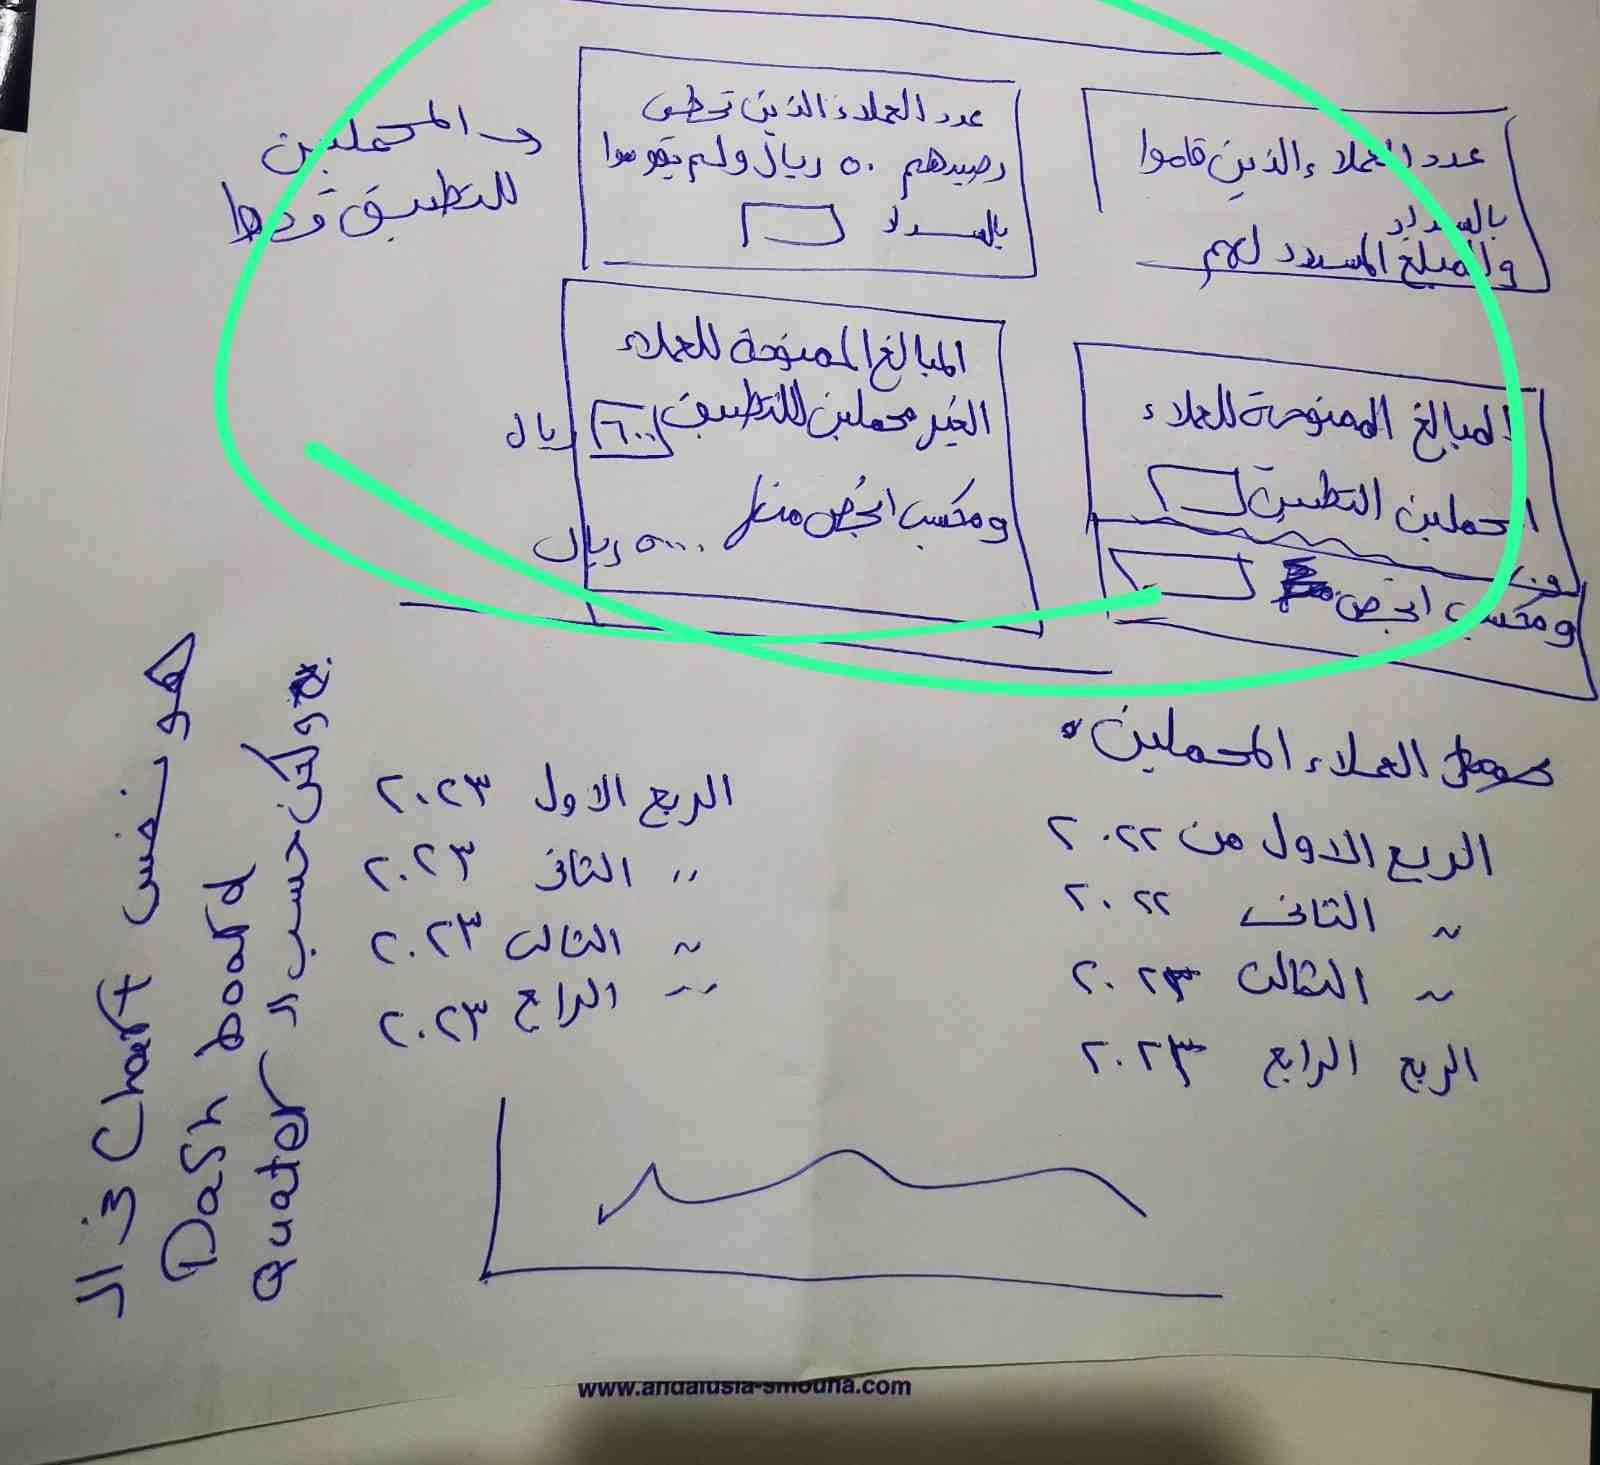 عدد العملاء الذين قاموا
بالسداد
والمبلغ المسدد لهم
عدد العملاء الذين تخطى
رصيدهم ٥٠ ريال ولم يقوموا
بالسداد
المحملين
للتطبيق فقط
المبالغ الممنوحة للعملاء
المحملين التطبيق
ومكسب اخصم
المبالغ الممنوحة للعملاء
الغير محملين للتطبيق ٦٠٠ ريال
ومكسب اخصم منها ٥٠٠٠ ريال
العملاء المحملين
الربع الاول من ٢٠٢٢
〃 الثانى ٢٠٢٢
〃 الثالث ٢٠٢٣
الربع الرابع ٢٠٢٣
الربع الاول ٢٠٢٣
〃 الثانى ٢٠٢٣
〃 الثالث ٢٠٢٣
〃 الرابع ٢٠٢٣
هو نفس Chart فى الـ
Dash board
ولكن حسب الـ
Quater
www.andalusia-smouha.com